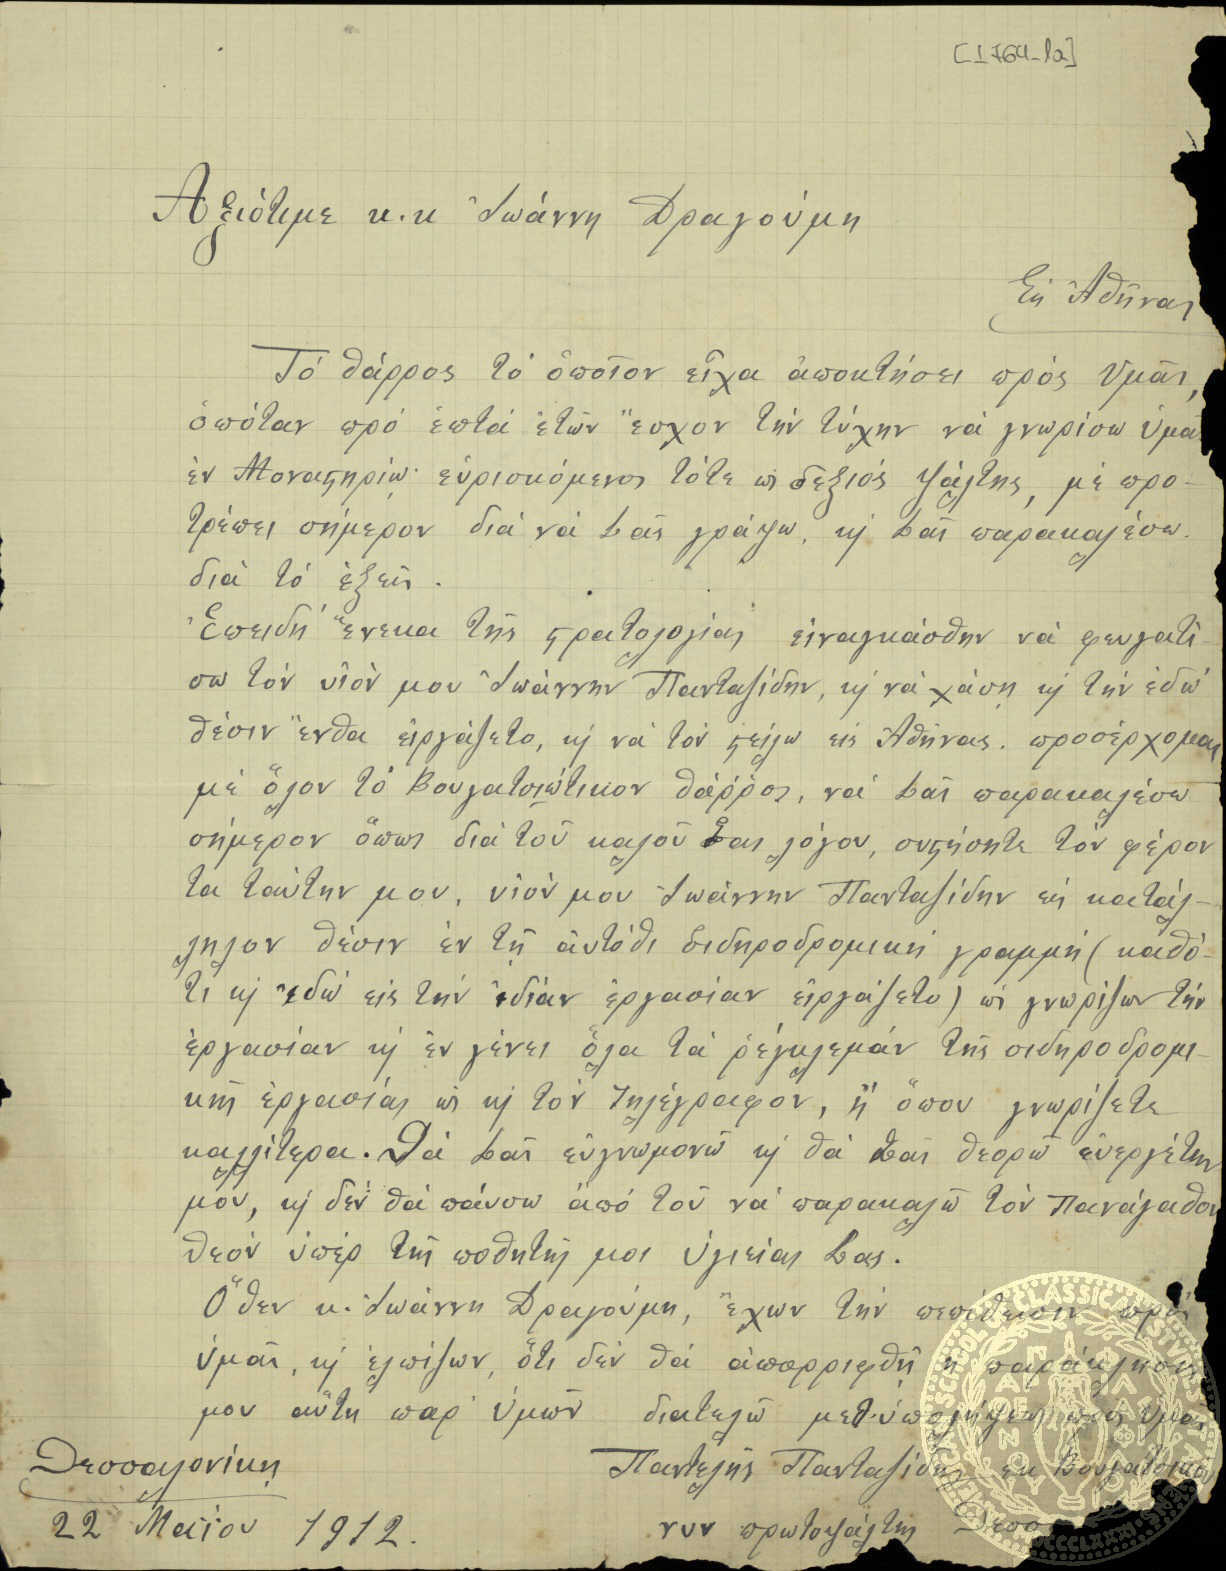 [1764-1a]
Ἀξιότιμε κ. κ Ἰωάννη Δραγούμη
Εἰς Ἀθήνας
Τό θάρρος τό ὁποῖον εἶχα ἀποκτήσει πρός Ὑμᾶς,
ὁπόταν πρό ἑπτά ἐτῶν ἔσχον τήν τύχην νά γνωρίσω ὑμᾶς
ἐν Μοναστηρίῳ εὑρισκόμενος τότε ὡς δεξιός ψάλτης, μέ προ-
τρέπει σήμερον διά νά Σας γράψω, κ Σας παρακαλέσω.
διά τό ἑξεῖς.
Ἐπειδή ἕνεκα τῆς στρατολογίας εἰναγκάσθην νά φευγατί-
σω τόν υἱόν μου Ἰωάννην Πανταζίδην, κ νά χάσῃ κ τήν ἐδῶ
θέσιν ἔνθα εἰργάζετο, κ νά τόν στείλω εἰς Ἀθήνας. προσέρχομαι
μέ ὅλον τό Βογατσιώτικον θάρρος, νά Σας παρακαλέσω
σήμερον ὅπως διά τοῦ καλοῦ Σας λόγου, συστήσητε τόν φέρον
τα ταύτην μου, υἱόν μου Ἰωάννην Πανταζίδην εἰς κατάλ-
ληλον θέσιν ἐν τῇ αὐτόθι σιδηροδρομική γραμμή (καθό-
τι κ ἐδῶ εἰς τήν ἰδίαν ἐργασίαν εἰργάζετο) ὡς γνωρίζων τήν
ἐργασίαν κ ἐν γένει ὅλα τά ῥέγκλεμάν τῆς σιδηροδρομι-
κῆς ἐργασίας ὡς κ τόν τηλέγραφον, ἤ ὅπου γνωρίζετε
καλλίτερα. Θά Σας εὐγνωμονῶ κ θά Σας θεορῶ εὐεργέτην
μου, κ δέν θά παύσω ἀπό τοῦ νά παρακαλῶ τόν Πανάγαθον
θεόν ὑπέρ τῆς ποθητῆς μοι ὑγιείας Σας.
Ὅθεν κ. Ἰωάννη Δραγούμη, ἔχων τήν πεποίθησιν πρός
ὑμᾶς, κ ἐλπίζων, ὅτι δέν θά ἀπορριφθῇ ἡ παράκλησις
μου αὕτη παρ' ὑμῶν διατελῶ μεθ' ὑπολήψεως πρός ὑμᾶς
Θεσσαλονίκη Παντελῆς Πανταζίδης ἐκ
22 Μαΐου 1912. νυν πρωτοψάλτης